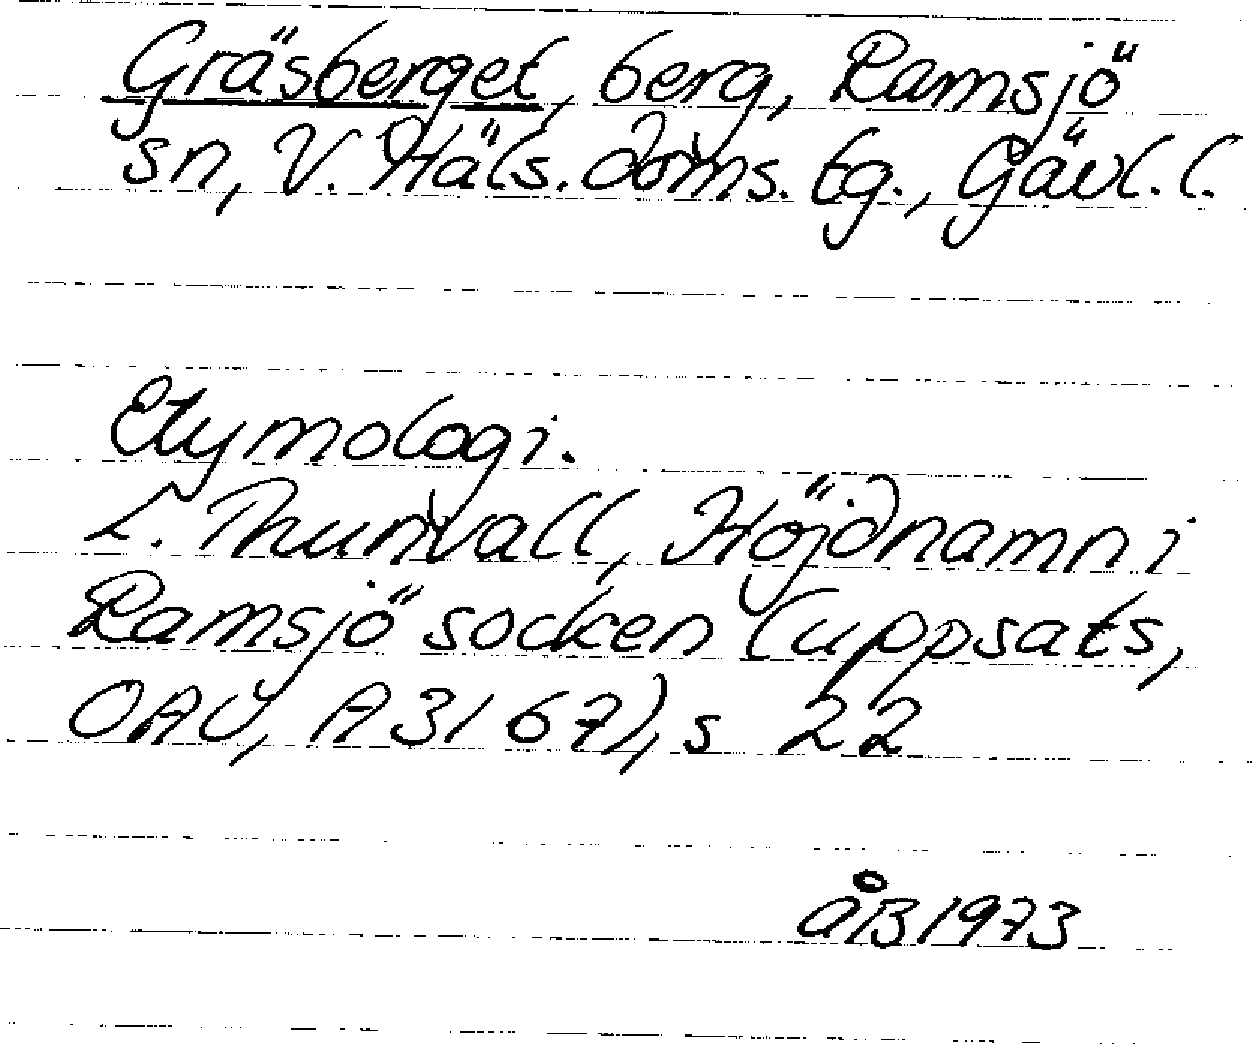 Gräsberget, berg, Ramsjö
sn, V. Häls. doms. tg., Gävl. l.
Etymologi.
L. Thunvall, Höjdnamn i
Ramsjö socken (uppsats,
OAU, A 3167), s 22
ÅB 1973